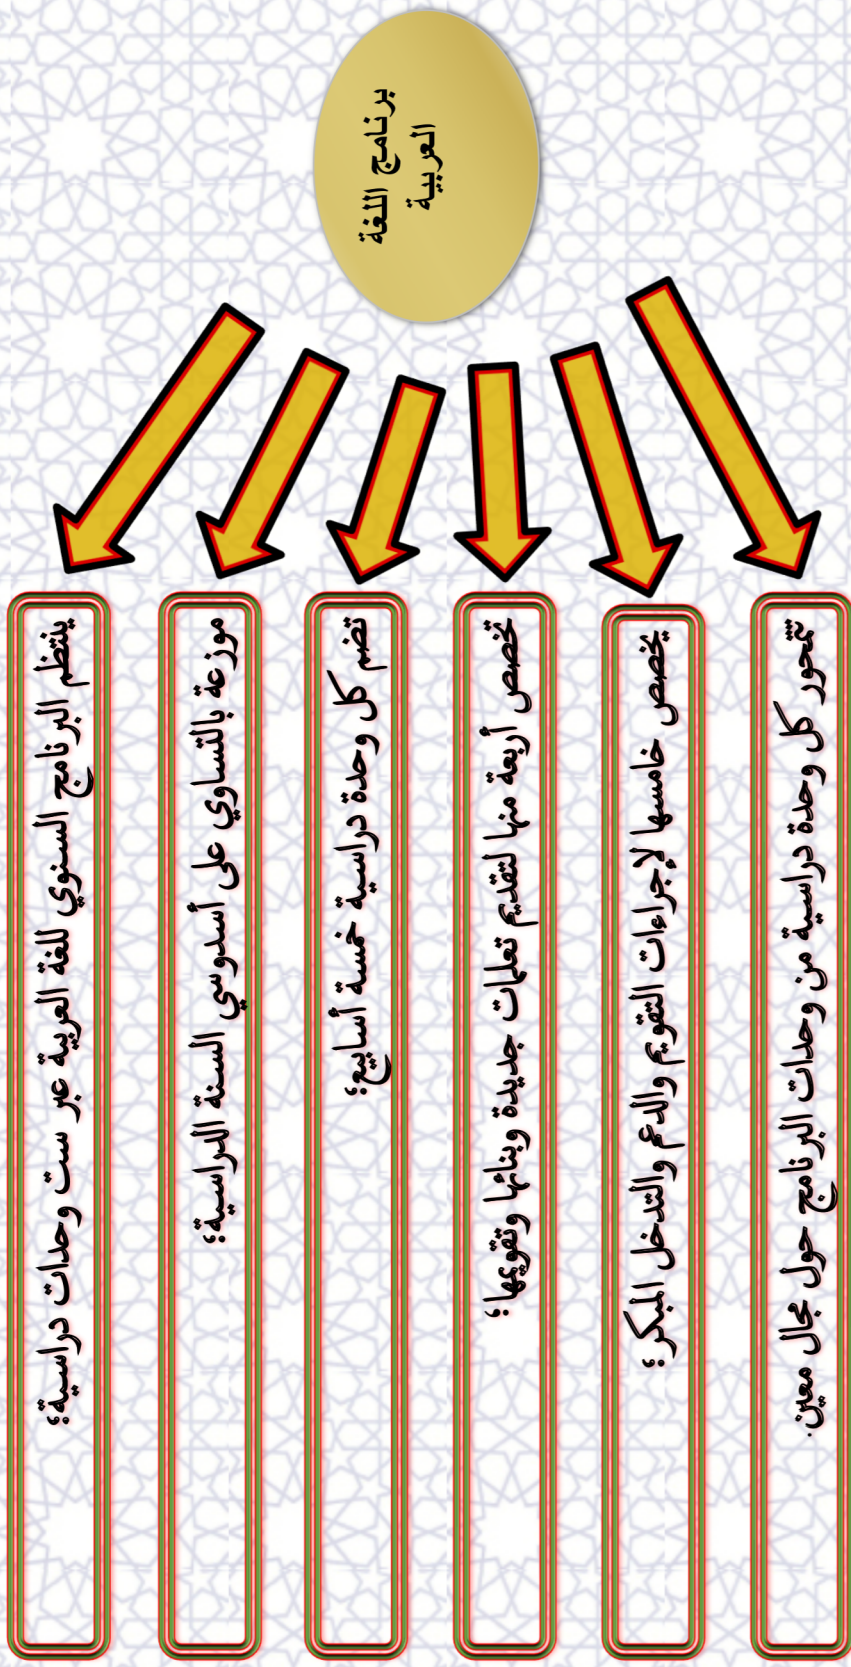 برنامج اللغة
العربية
ينتظم البرنامج السنوي للغة العربية عبر ست وحدات دراسية؛
موزعة بالتساوي على أسدوسي السنة الدراسية؛
تضم كل وحدة دراسية خمسة أسابيع؛
تخصص أربعة منها لتقديم تعلمات جديدة وبنائها وتقويمها؛
يخصص خامسها لإجراءات التقويم والدعم والتدخل المبكر؛
تتمحور كل وحدة دراسية من وحدات البرنامج حول مجال معين.